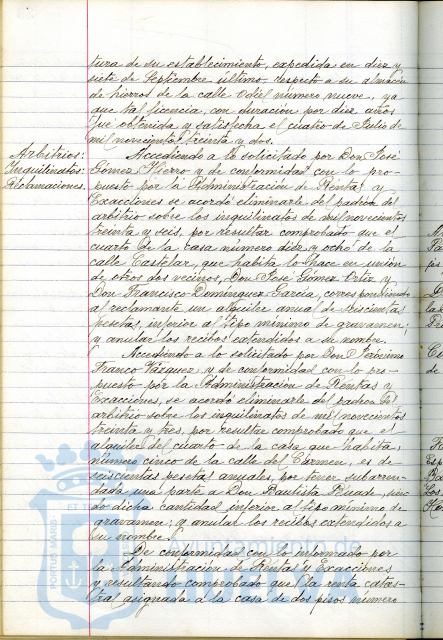 tura de su establecimiento, expedida en diez y
siete de Septiembre último, respecto a su almacén
de hierros de la calle Odiel número nueve, ya
que tal licencia, con duración por diez años
fué obtenida y satisfecha el cuatro de Julio de
mil novecientos treinta y dos.
Arbitrios:
Inquilinatos:
Reclamaciones.
Accediendo a lo solicitado por Don José
Gómez Hierro y de conformidad con lo pro-
puesto por la Administración de Rentas y
Exacciones se acordó eliminarle del padrón del
arbitrio sobre los inquilinatos de mil novecientos
treinta y seis, por resultar comprobado que el
cuarto de la casa número diez y ocho de la
calle Castelar, que habita lo hace en unión
de otros dos vecinos, Don José Gómez Ortiz y
Don Francisco Domínguez García, correspondiendo
al reclamante un alquiler anual de seiscientas
pesetas, inferior al tipo mínimo de gravamen;
y anular los recibos extendidos a su nombre.
Accediendo a lo solicitado por Don Jerónimo
Franco Vázquez, y de conformidad con lo pro-
puesto por la Administración de Rentas y
Exacciones, se acordó eliminarle del padrón del
arbitrio sobre los inquilinatos de mil novecientos
treinta y tres, por resultar comprobado que el
alquiler del cuarto de la casa que habita,
número cinco de la calle del Carmen, es de
seiscientas pesetas anuales, por tener subarren-
dada una parte a Don Bautista
dicha cantidad inferior al tipo mínimo de
gravamen; y anular los recibos extendidos a
su nombre.
De conformidad con lo informado por
la Administración de Rentas y Exacciones
y resultando comprobado que la renta catas-
tral asignada a la casa de dos pisos número
PORTUS MARIS
Ayuntamiento de